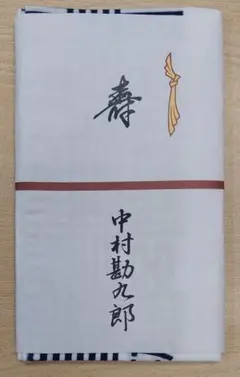 寿
中村勘九郎